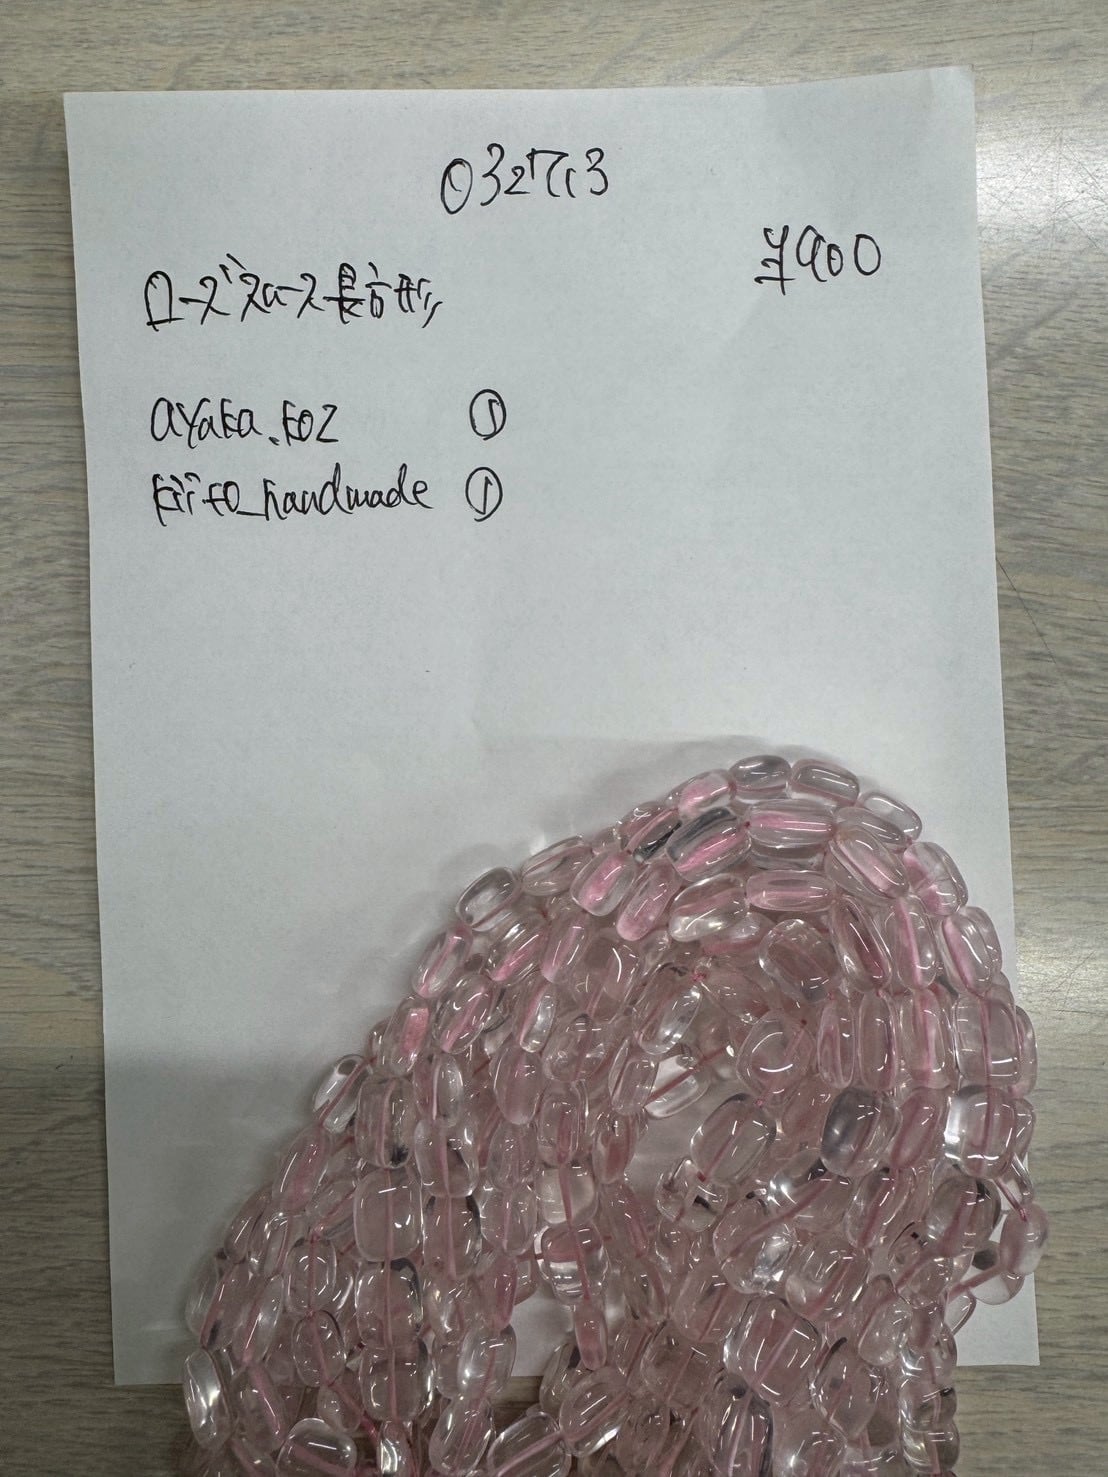 0327113
¥900
ローズ
長方形
ayaka.koz ①
kiito_handmade ①